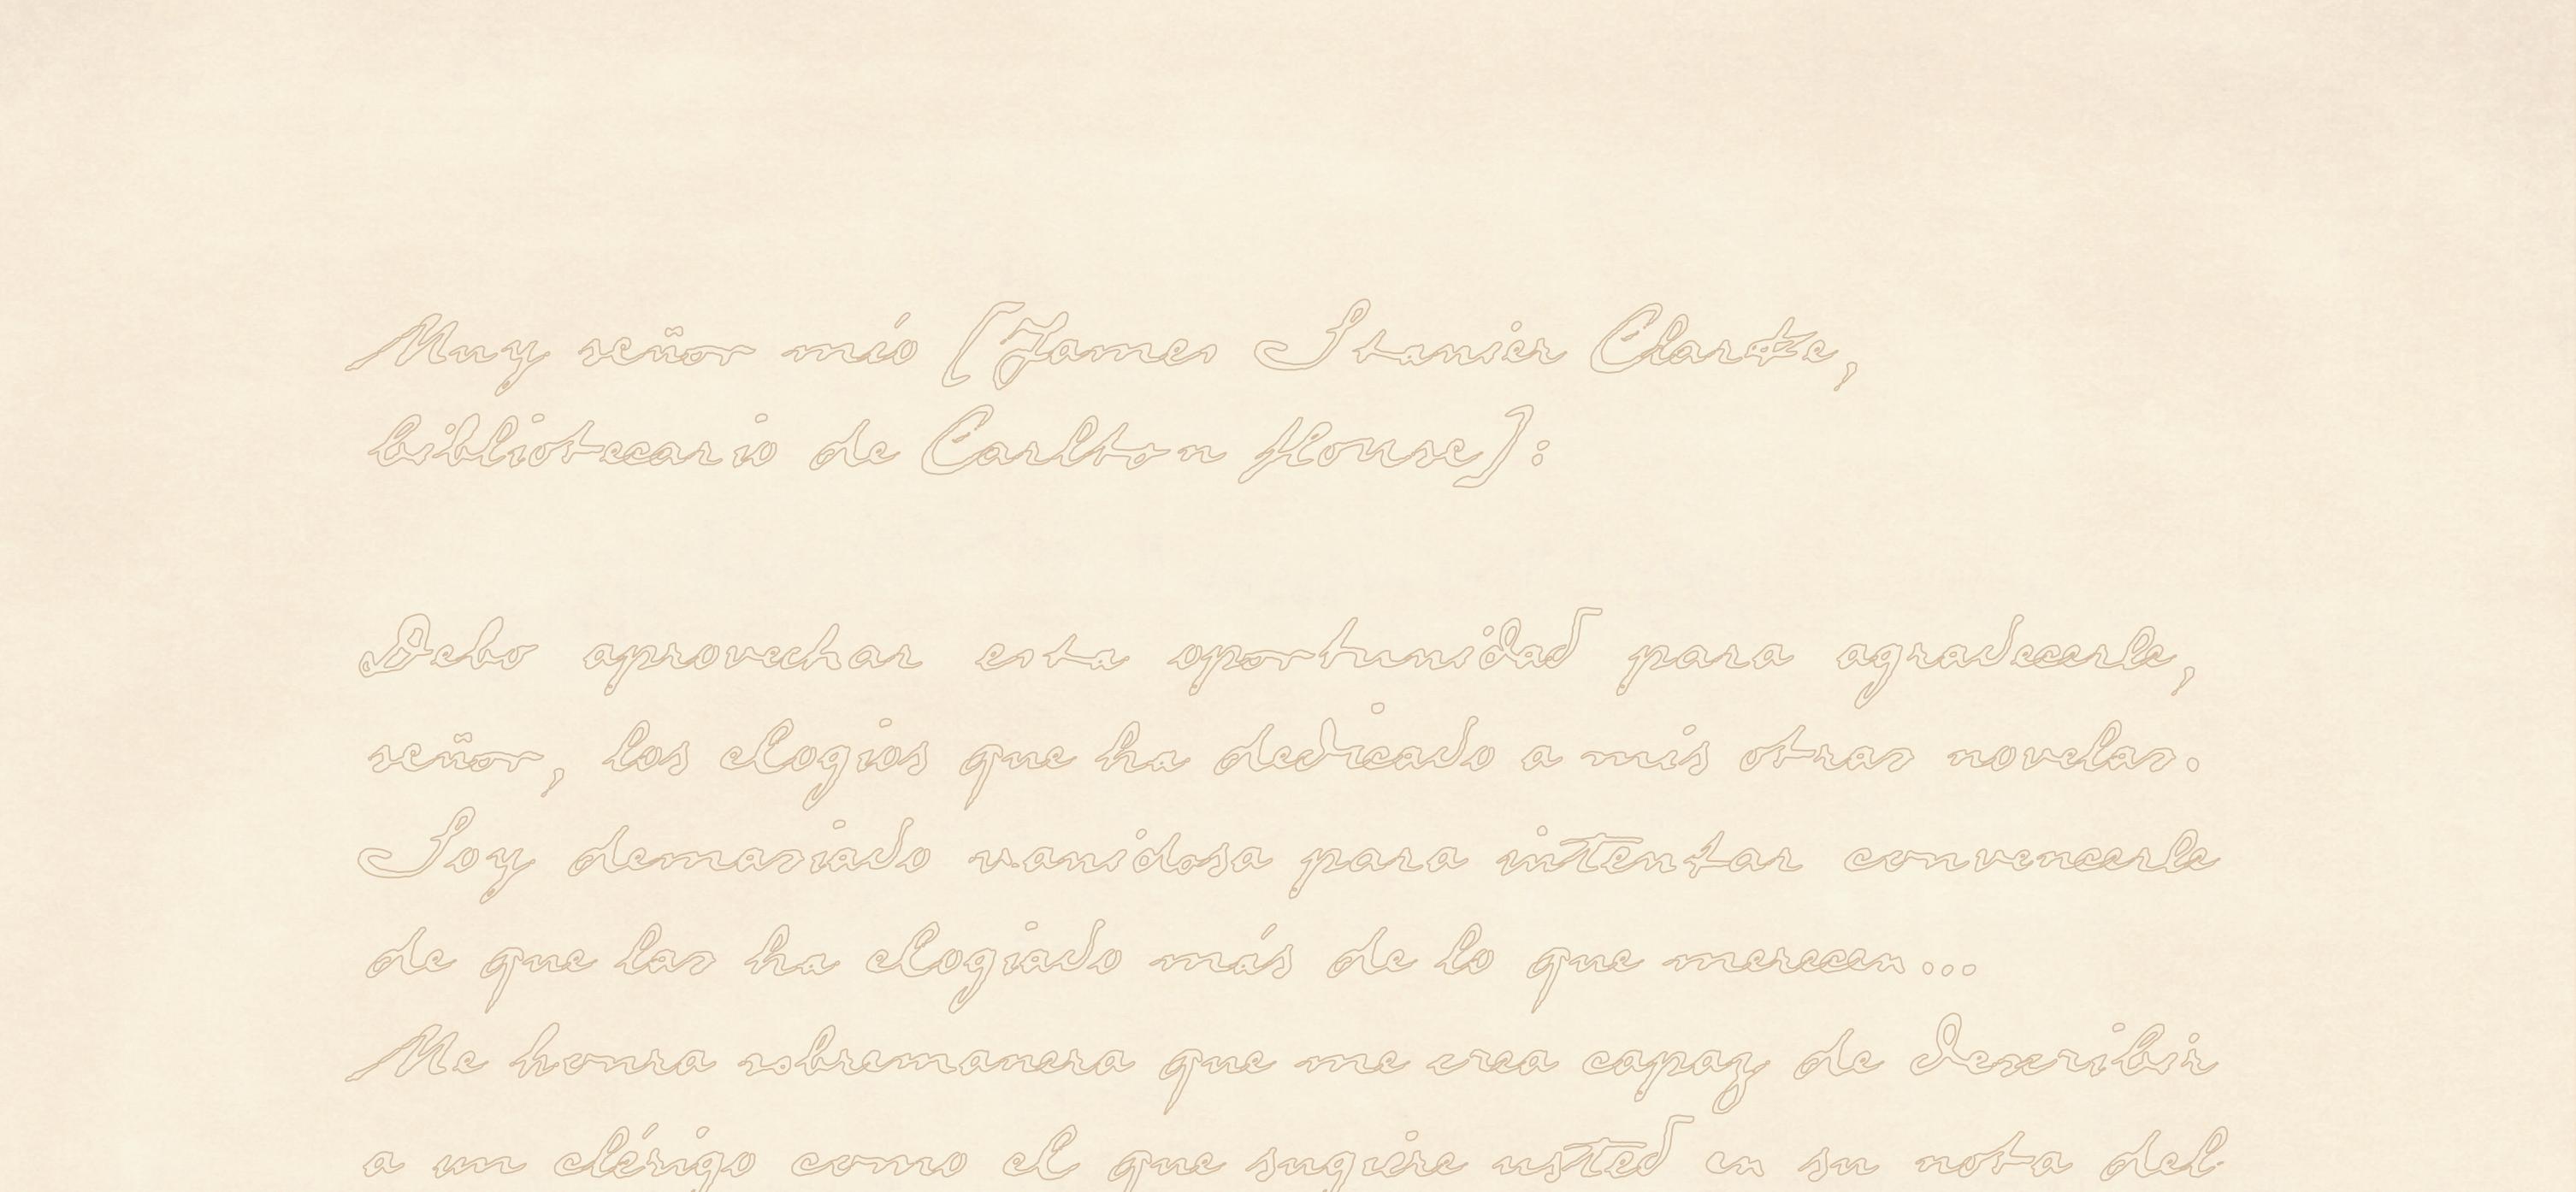 Muy señor mío [James Stanier Clarke,
bibliotecario de Carlton House]:
Debo aprovechar esta oportunidad para agradecerle,
señor, los elogios que ha dedicado a mis otras novelas.
Soy demasiado vanidosa para intentar convencerle
de que las ha elogiado más de lo que merecen...
Me honra sobremanera que me crea capaz de describir
a un clérigo como el que sugiere usted en su nota del